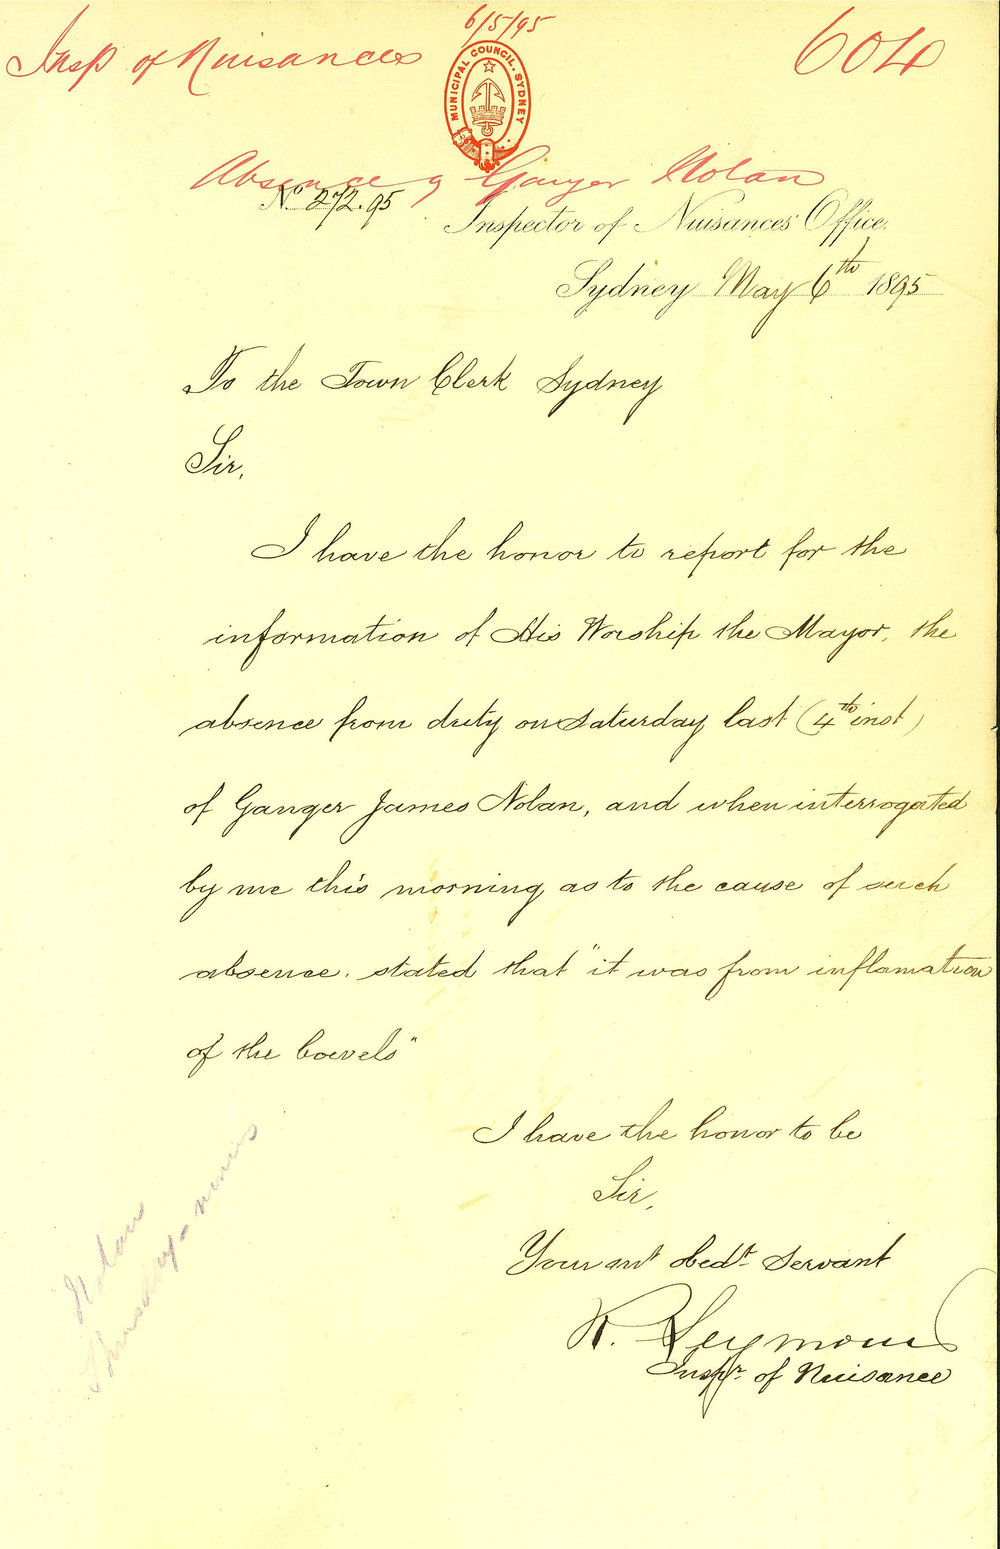 6/5/95
Insp of Nuisances
604
MUNICIPAL COUNCIL. SYDNEY
Absence of Ganger Nolan
No 272.95
Inspector of Nuisances' Office.
Sydney May 6th 1895
To the Town Clerk Sydney
Sir,
I have the honor to report for the
information of His Worship the Mayor, the
absence from duty on Saturday last (4th inst)
of Ganger James Nolan, and when interrogated
by me this morning as to the cause of such
absence. stated that "it was from inflamation
of the bowels"
I have the honor to be
Sir,
Your mt obedt servant
R. Seymour
Inspr of Nuisance
Nolan
Thursday-